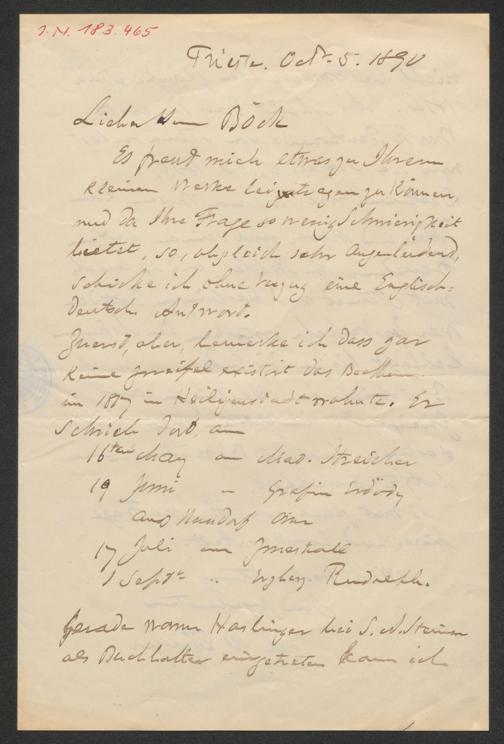 I.N. 183.465
Trieste. Octr. 5. 1890
Lieber Herr Böck
Es freut mich etwas zu Ihrem
kleinen Werke beizutragen zu können,
und da Ihre Frage so wenig Schwierigkeit
bietet, so, obgleich sehr Augenleidend,
schicke ich ohne Verzug eine Englisch-
deutsche Antwort.
Zuerst, aber, bemerke ich dass gar
keine Zweifel existirt das Beethoven
im 1817 in Heiligenstadt wohnte. Er
schrieb dort am
16ten May an Mad. Streicher
19 Juni " Gräfin Erdödy
aus Nussdorf
17 Juli an Zmeskall
1 Septr. " Erzherz. Rudolph.
Gerade wann Haslinger bei S. A. Steiner
als Buchhalter eingetreten kann ich